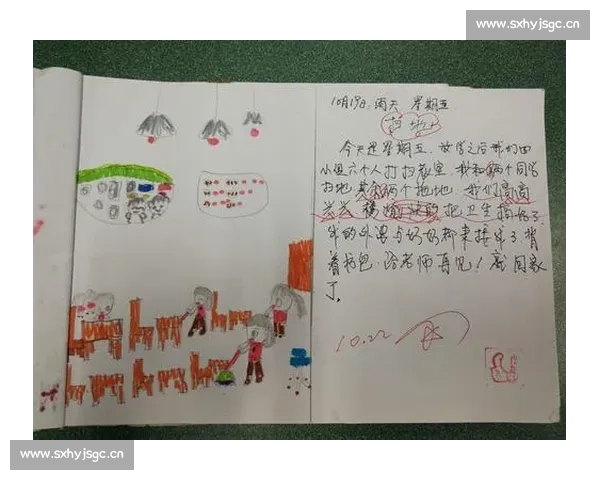 www.sxhyjsgc.cn
10月19日 雨天 星期五
扫地
今天是星期五,放学之后我们四
小组六个人打扫教室,我和两个同学
扫地其余两个拖地,我们高高
兴兴 把卫生搞好了
年的外婆与奶奶都来接
着书包,给老师再见!就回家
了。
10.22
www.sxhyjsgc.cn